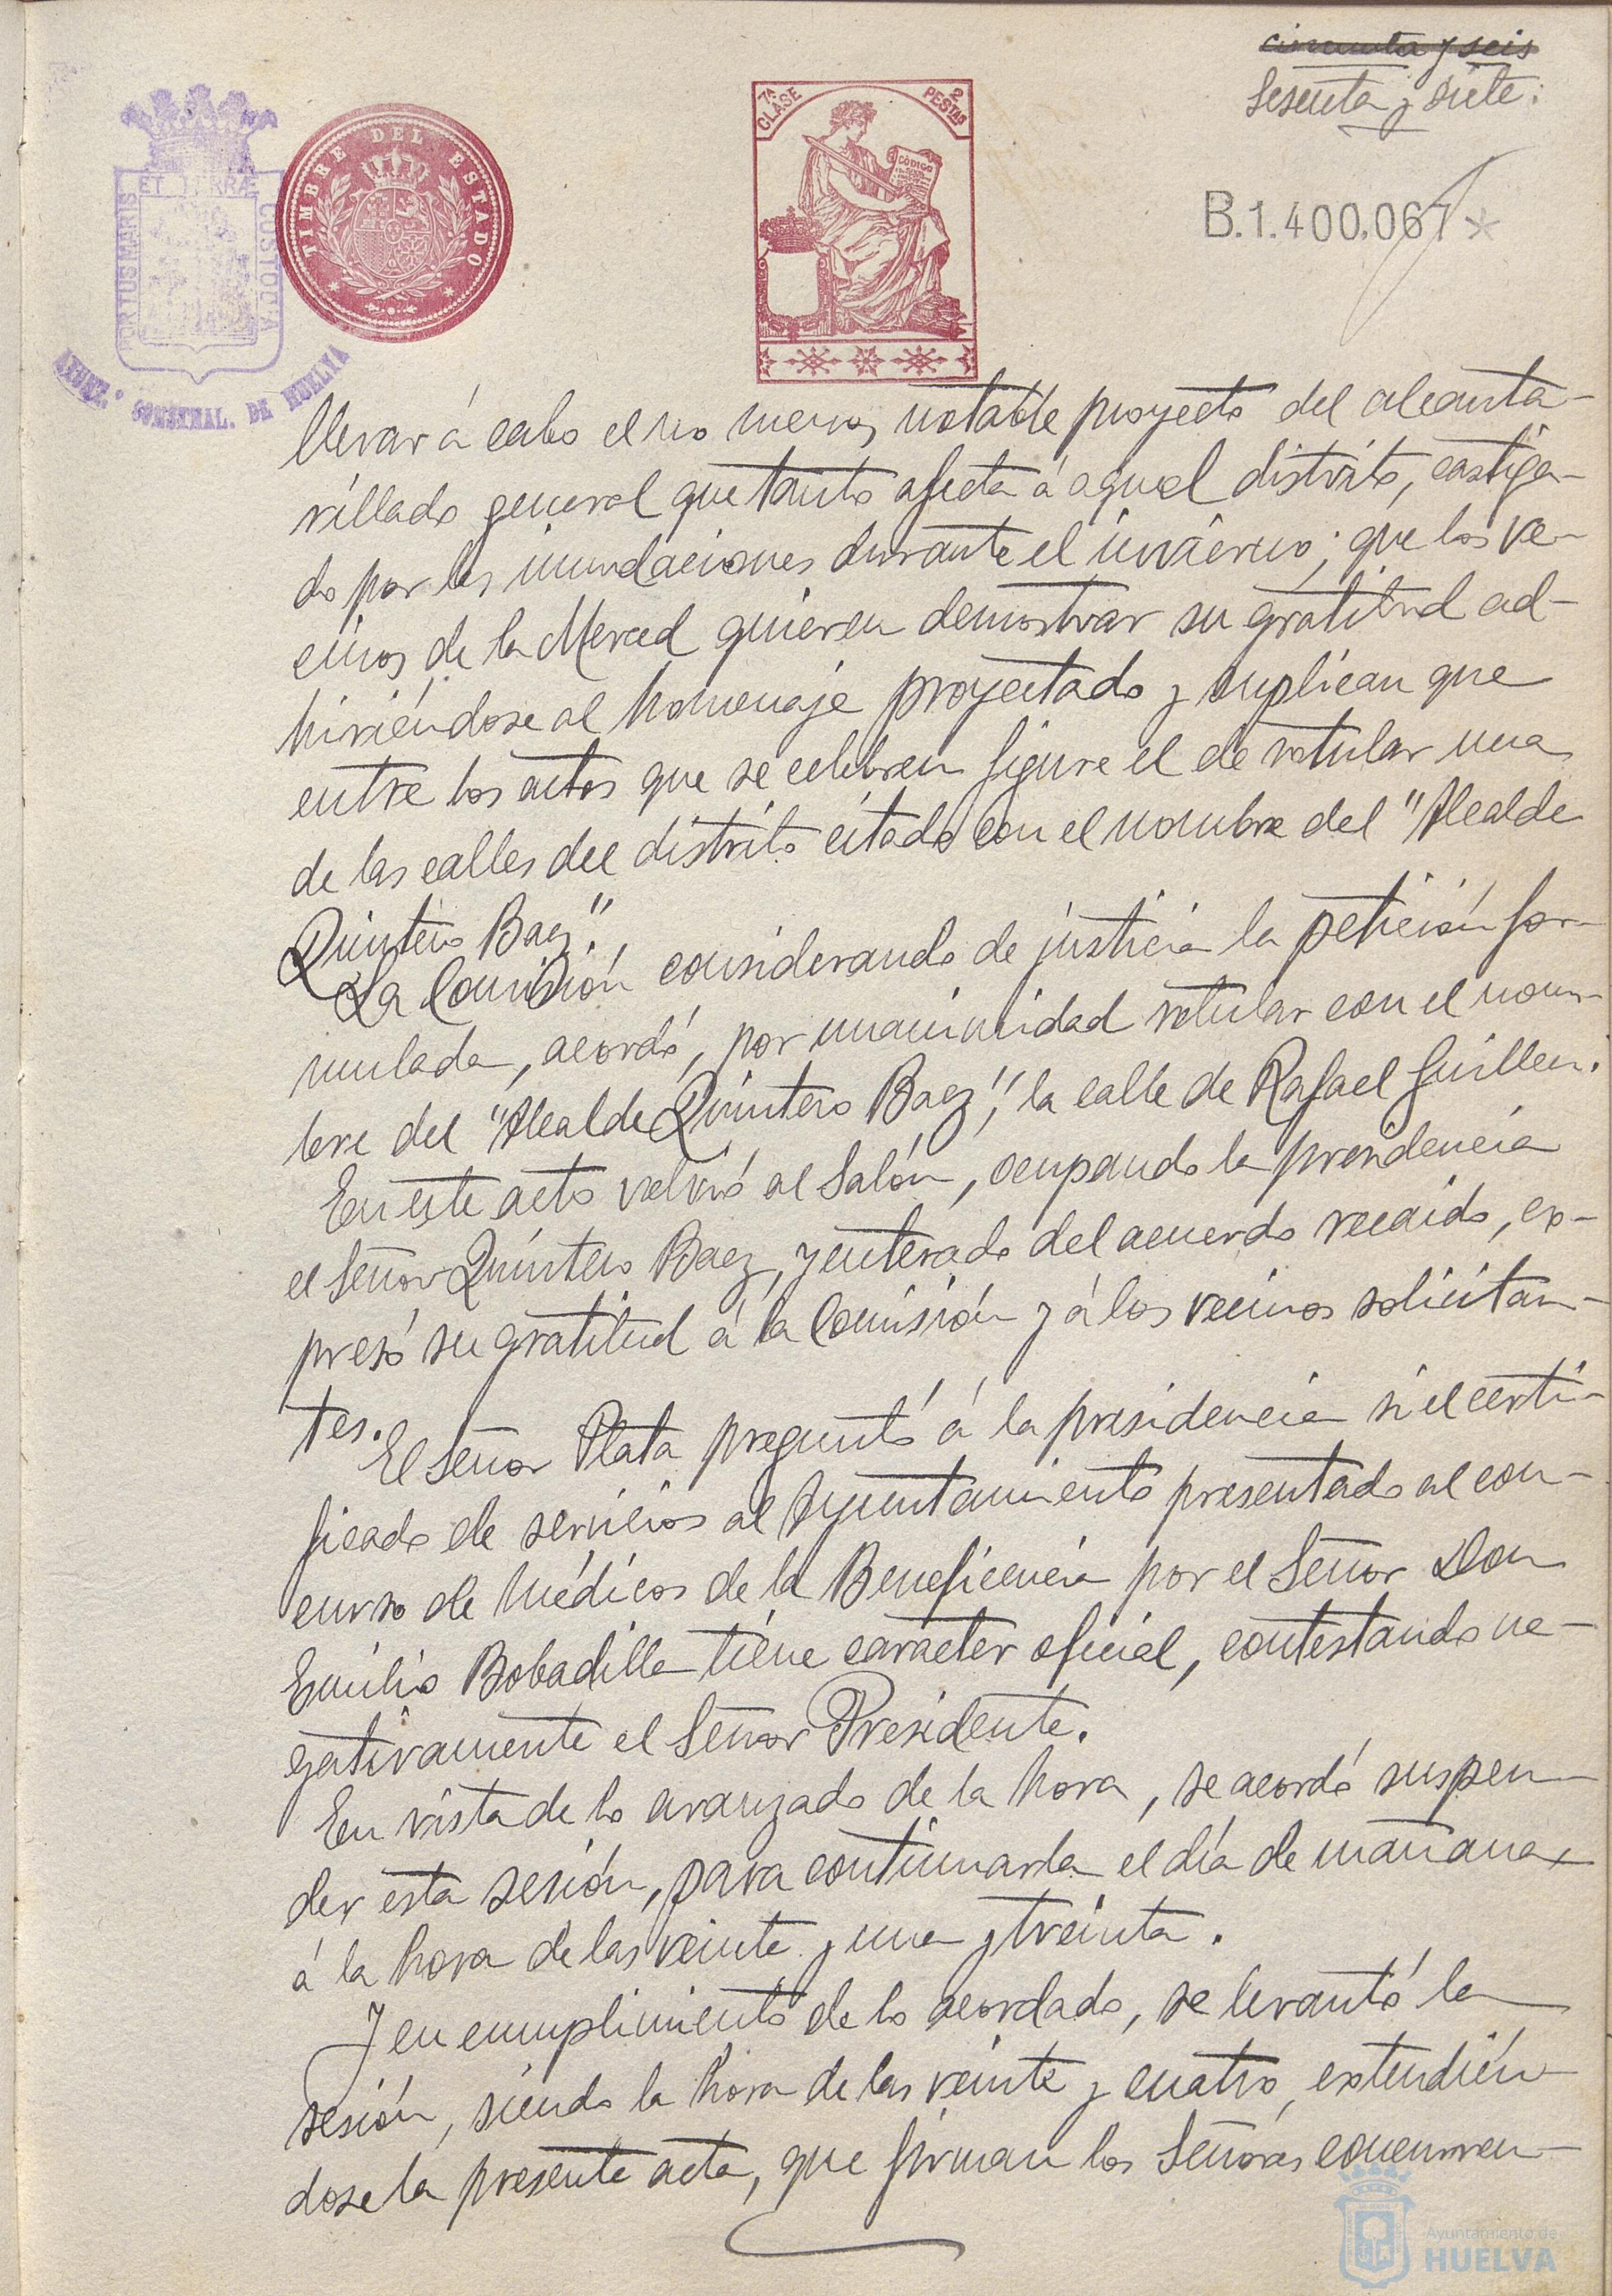 cincuenta y seis
Sesenta y siete.
7ª CLASE
2 PESTAS
CÓDIGO
TIMBRE DEL ESTADO
PORTUS MARIS ET TERRÆ CUSTODIA
AYUNT.º CONSTNAL. DE HUELVA
B.1.400.067*
llevar á cabo el no menos notable proyecto del alcanta-
rillado general que tanto afecta á aquel distrito, castiga-
do por las inundaciones durante el invierno; que los ve-
cinos de la Merced quieren demostrar su gratitud ad-
hiriéndose al homenaje proyectado y suplican que
entre los actos que se celebren figure el de rotular una
de las calles del distrito citado con el nombre del "Alcalde
Quintero Baez".
La Comisión considerando de justicia la petición for-
mulada, acordó, por unanimidad rotular con el nom-
bre del "Alcalde Quintero Baez", la calle de Rafael Guillen.
En este acto volvió al Salón, ocupando la presidencia
el Señor Quintero Baez, y enterado del acuerdo recaido, ex-
presó su gratitud á la Comisión y á los vecinos solicitan-
tes.
El Señor Plata preguntó á la presidencia si el certi-
ficado de servicios al Ayuntamiento presentado al con-
curso de Médicos de la Beneficencia por el Señor Don
Emilio Bobadilla tiene carácter oficial, contestando ne-
gativamente el Señor Presidente.
En vista de lo avanzado de la hora, se acordó suspen-
der esta sesión, para continuarla el día de mañana
á la hora de las veinte y una y treinta.
Y en cumplimiento de lo acordado, se levantó la
sesión, siendo la hora de las veinte y cuatro, extendién-
dose la presente acta, que firman los Señores concurren-
Ayuntamiento de
HUELVA